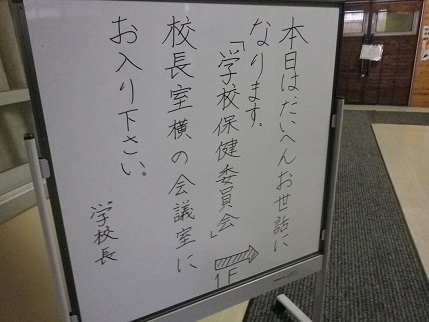 本日はたいへんお世話に
なります。
「学校保健委員会」
1F
校長室横の会議室に
お入り下さい。
学校長